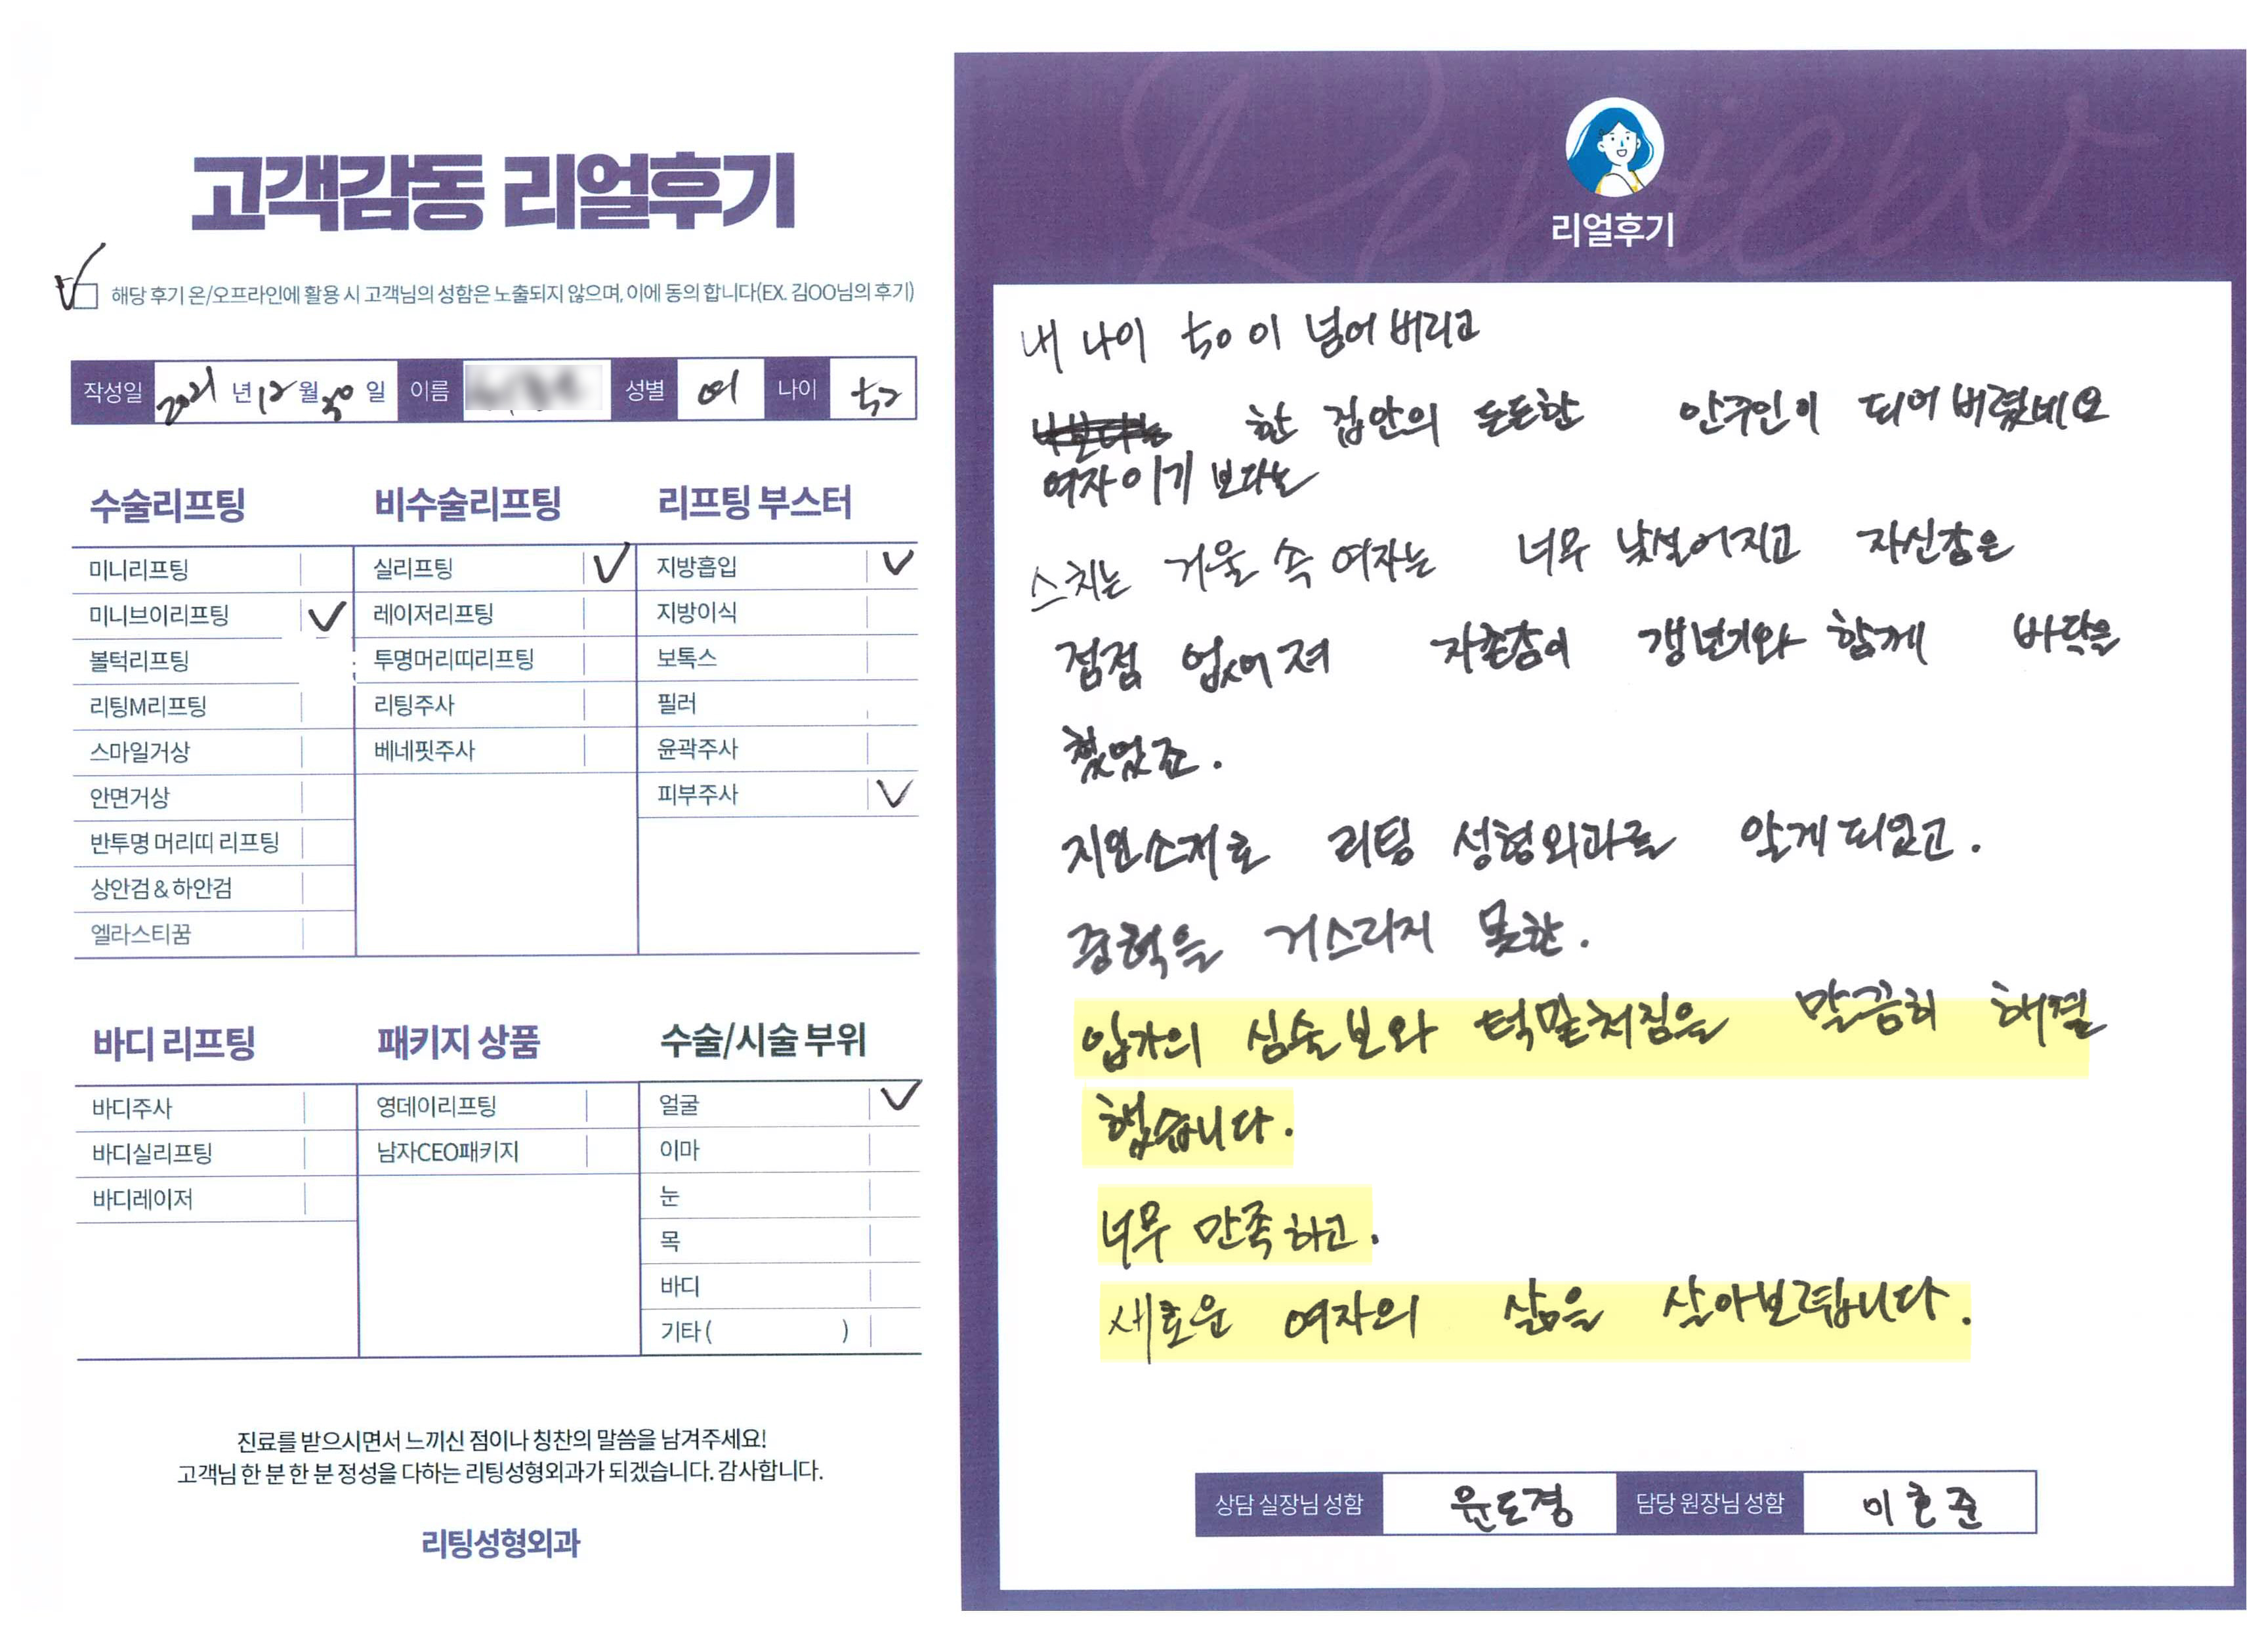 고객감동 리얼후기
해당 후기 온/오프라인에 활용 시 고객님의 성함은 노출되지 않으며, 이에 동의 합니다(EX. 김OO님의 후기)
작성일 2021 년 12 월 30 일 이름 성별 여 나이 52
수술리프팅
미니리프팅
미니브이리프팅
볼턱리프팅
리팅M리프팅
스마일거상
안면거상
반투명 머리띠 리프팅
상안검 & 하안검
엘라스티꿈
비수술리프팅
실리프팅
레이저리프팅
투명머리띠리프팅
리팅주사
베네핏주사
리프팅 부스터
지방흡입
지방이식
보톡스
필러
윤곽주사
피부주사
바디 리프팅
바디주사
바디실리프팅
바디레이저
패키지 상품
영데이리프팅
남자CEO패키지
수술/시술 부위
얼굴
이마
눈
목
바디
기타 ( )
진료를 받으시면서 느끼신 점이나 칭찬의 말씀을 남겨주세요!
고객님 한 분 한 분 정성을 다하는 리팅성형외과가 되겠습니다. 감사합니다.
리팅성형외과
Review
리얼후기
내 나이 50이 넘어 버리고
한 집안의 든든한 안주인이 되어 버렸네요
여자이기 보다는
스치는 거울 속 여자는 너무 낯설어지고 자신감은
점점 없어져 자존감이 갱년기와 함께 바닥을
쳤었죠.
지인소개로 리팅 성형외과를 알게 되었고.
중력을 거스리지 못한.
입가의 심술보와 턱밑처짐을 말끔히 해결
했습니다.
너무 만족하고.
새로운 여자의 삶을 살아보렵니다.
상담 실장님 성함 윤도경 담당 원장님 성함 이호준